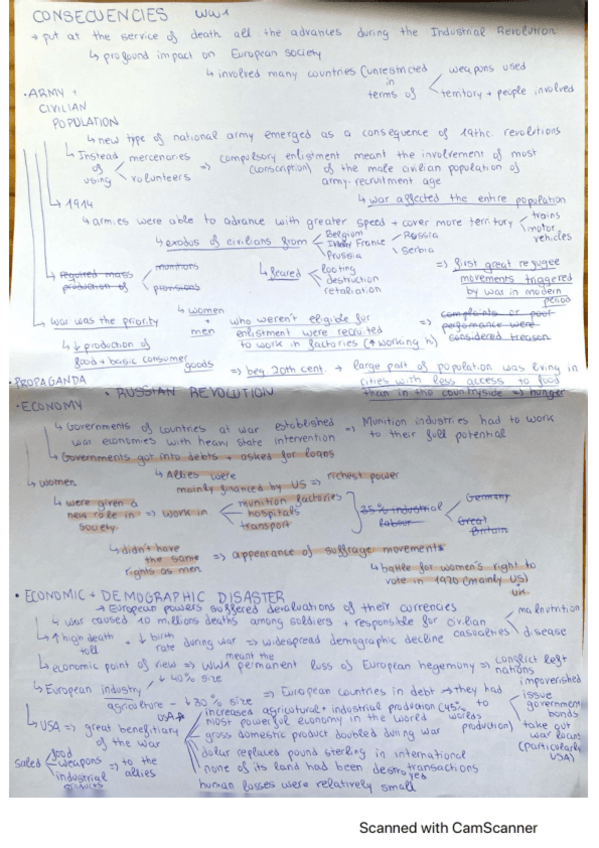 CONSECUENCIES WW1
→ put at the service of death all the advances during the Industrial Revolution
↳ profound impact on European society
↳ involved many countries (unrestricted in terms of
weapons used
territory + people involved
· ARMY + CIVILIAN POPULATION
↳ new type of national army emerged as a consequence of 19thc. revolutions
↳ Instead of using
mercenaries
volunteers
⇒ compulsory enlistment meant the involvement of most
(conscription) of the male civilian population of
army-recruitment age
↳ war affected the entire population
↳ 1914
↳ armies were able to advance with greater speed + cover more territory
trains
motor vehicles
↳ exodus of civilians from
Belgium
France
Prussia
Russia
Serbia
↳ feared
looting
destruction
retaliation
⇒ first great refugee
movements triggered
by war in modern
period
↳ required mass production of
munitions
provisions
↳ war was the priority
↳ women + men
who weren't eligible for
enlistment were recruited
to work in factories (↑ working h)
⇒ complaints or poor
performance were
considered treason
↳ ↓ production of
food + basic consumer
goods
⇒ beg 20th cent. → large part of population was living in
cities with less access to food
than in the countryside ⇒ hunger
· PROPAGANDA
· RUSSIAN REVOLUTION
· ECONOMY
↳ Governments of countries at war established
war economies with heavy state intervention
⇒ Munition industries had to work
to their full potential
↳ Governments got into debts + asked for loans
↳ Allies were
mainly financed by US ⇒ richest power
↳ women
↳ were given a
new role in
society
⇒ work in
munition factories
hospitals
transport
35% industrial
labour
Germany
Great Britain
↳ didn't have
the same
rights as men
⇒ appearance of suffrage movements
↳ battle for women's right to
vote in 1920 (mainly US)
UK
· ECONOMIC + DEMOGRAPHIC DISASTER
→ European powers suffered devaluations of their currencies
↳ war caused 10 millions deaths among soldiers + responsible for civilian
casualties
malnutrition
disease
↳ ↑ high death toll + ↓ birth rate during war ⇒ widespread demographic decline
↳ economic point of view ⇒ WW1 meant the permanent loss of European hegemony ⇒ conflict left
nations
impoverished
↳ European industry ↓ 40% size
agriculture - ↓ 30% size
⇒ European countries in debt → they had
to
issue
government
bonds
take out
war loans
(particularly
USA)
↳ USA ⇒ great benefitiary
of the war
USA
increased agricultural + industrial production (45% worlds production)
most powerful economy in the world
gross domestic product doubled during war
dollar replaced pound sterling in international
transactions
none of its land had been destroyed
human losses were relatively small
saled
food
weapons
industrial
⇒ to the
allies
Scanned with CamScanner